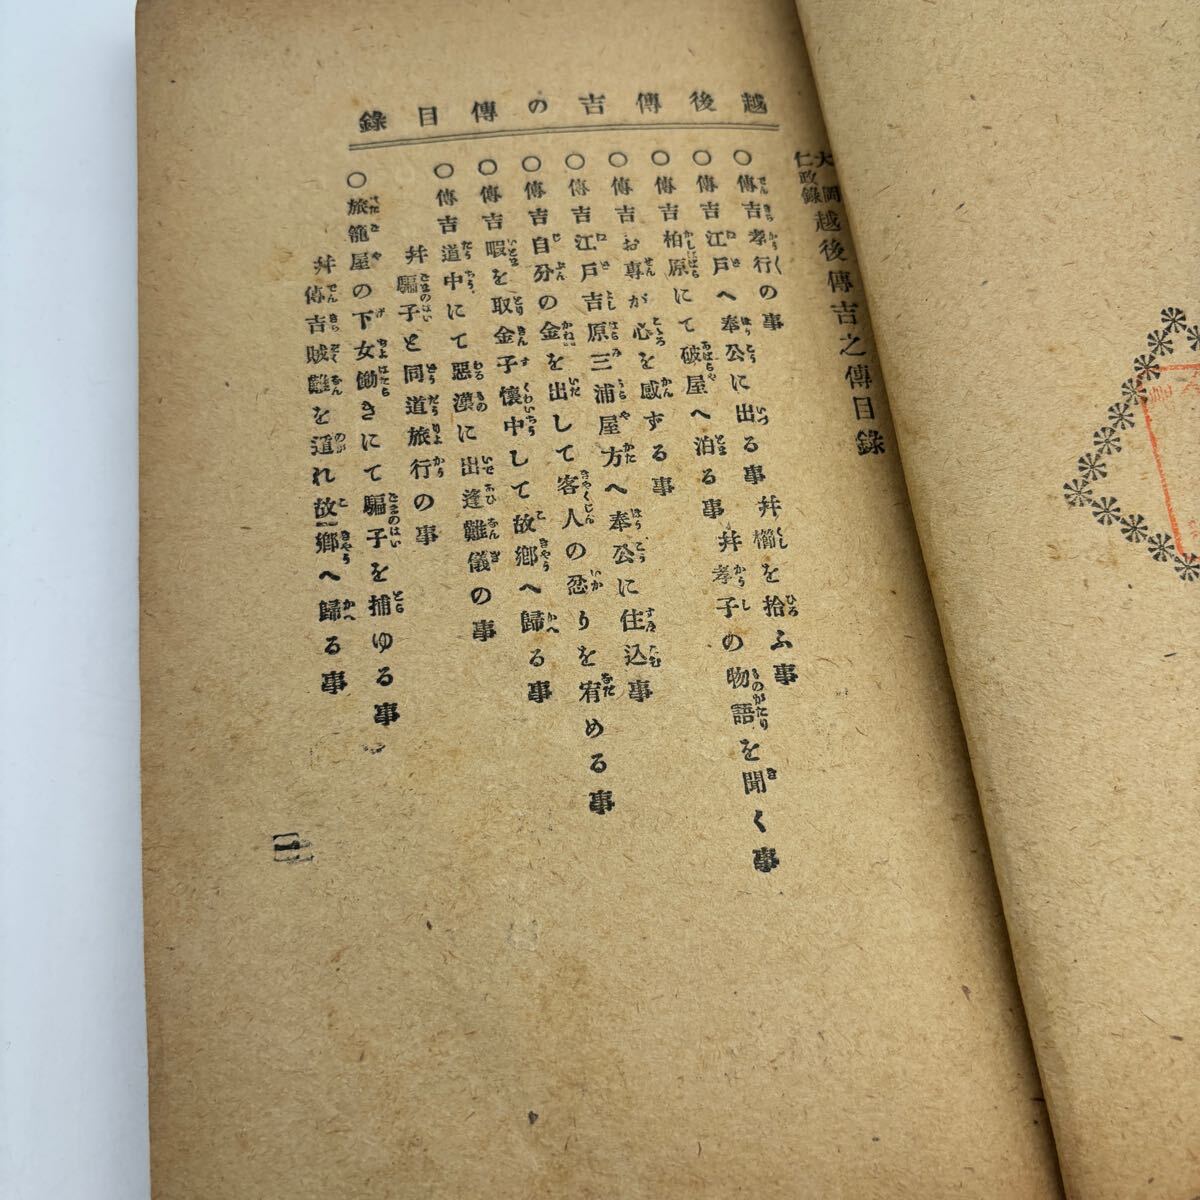 越後傳吉の傳目錄
大岡仁政錄 越後傳吉之傳目錄
○傳吉孝行の事
○傳吉江戸へ奉公に出る事幷櫛を拾ふ事
○傳吉柏原にて破屋へ泊る事幷孝子の物語を聞く事
○傳吉お專が心を感ずる事
○傳吉江戸吉原三浦屋方へ奉公に住込事
○傳吉自分の金を出して客人の忿りを宥める事
○傳吉暇を取金子懷中して故鄕へ歸る事
○傳吉道中にて惡漢に出逢難儀の事
幷騙子と同道旅行の事
○旅籠屋の下女働きにて騙子を捕ゆる事
幷傳吉賊難を遁れ故鄕へ歸る事
一